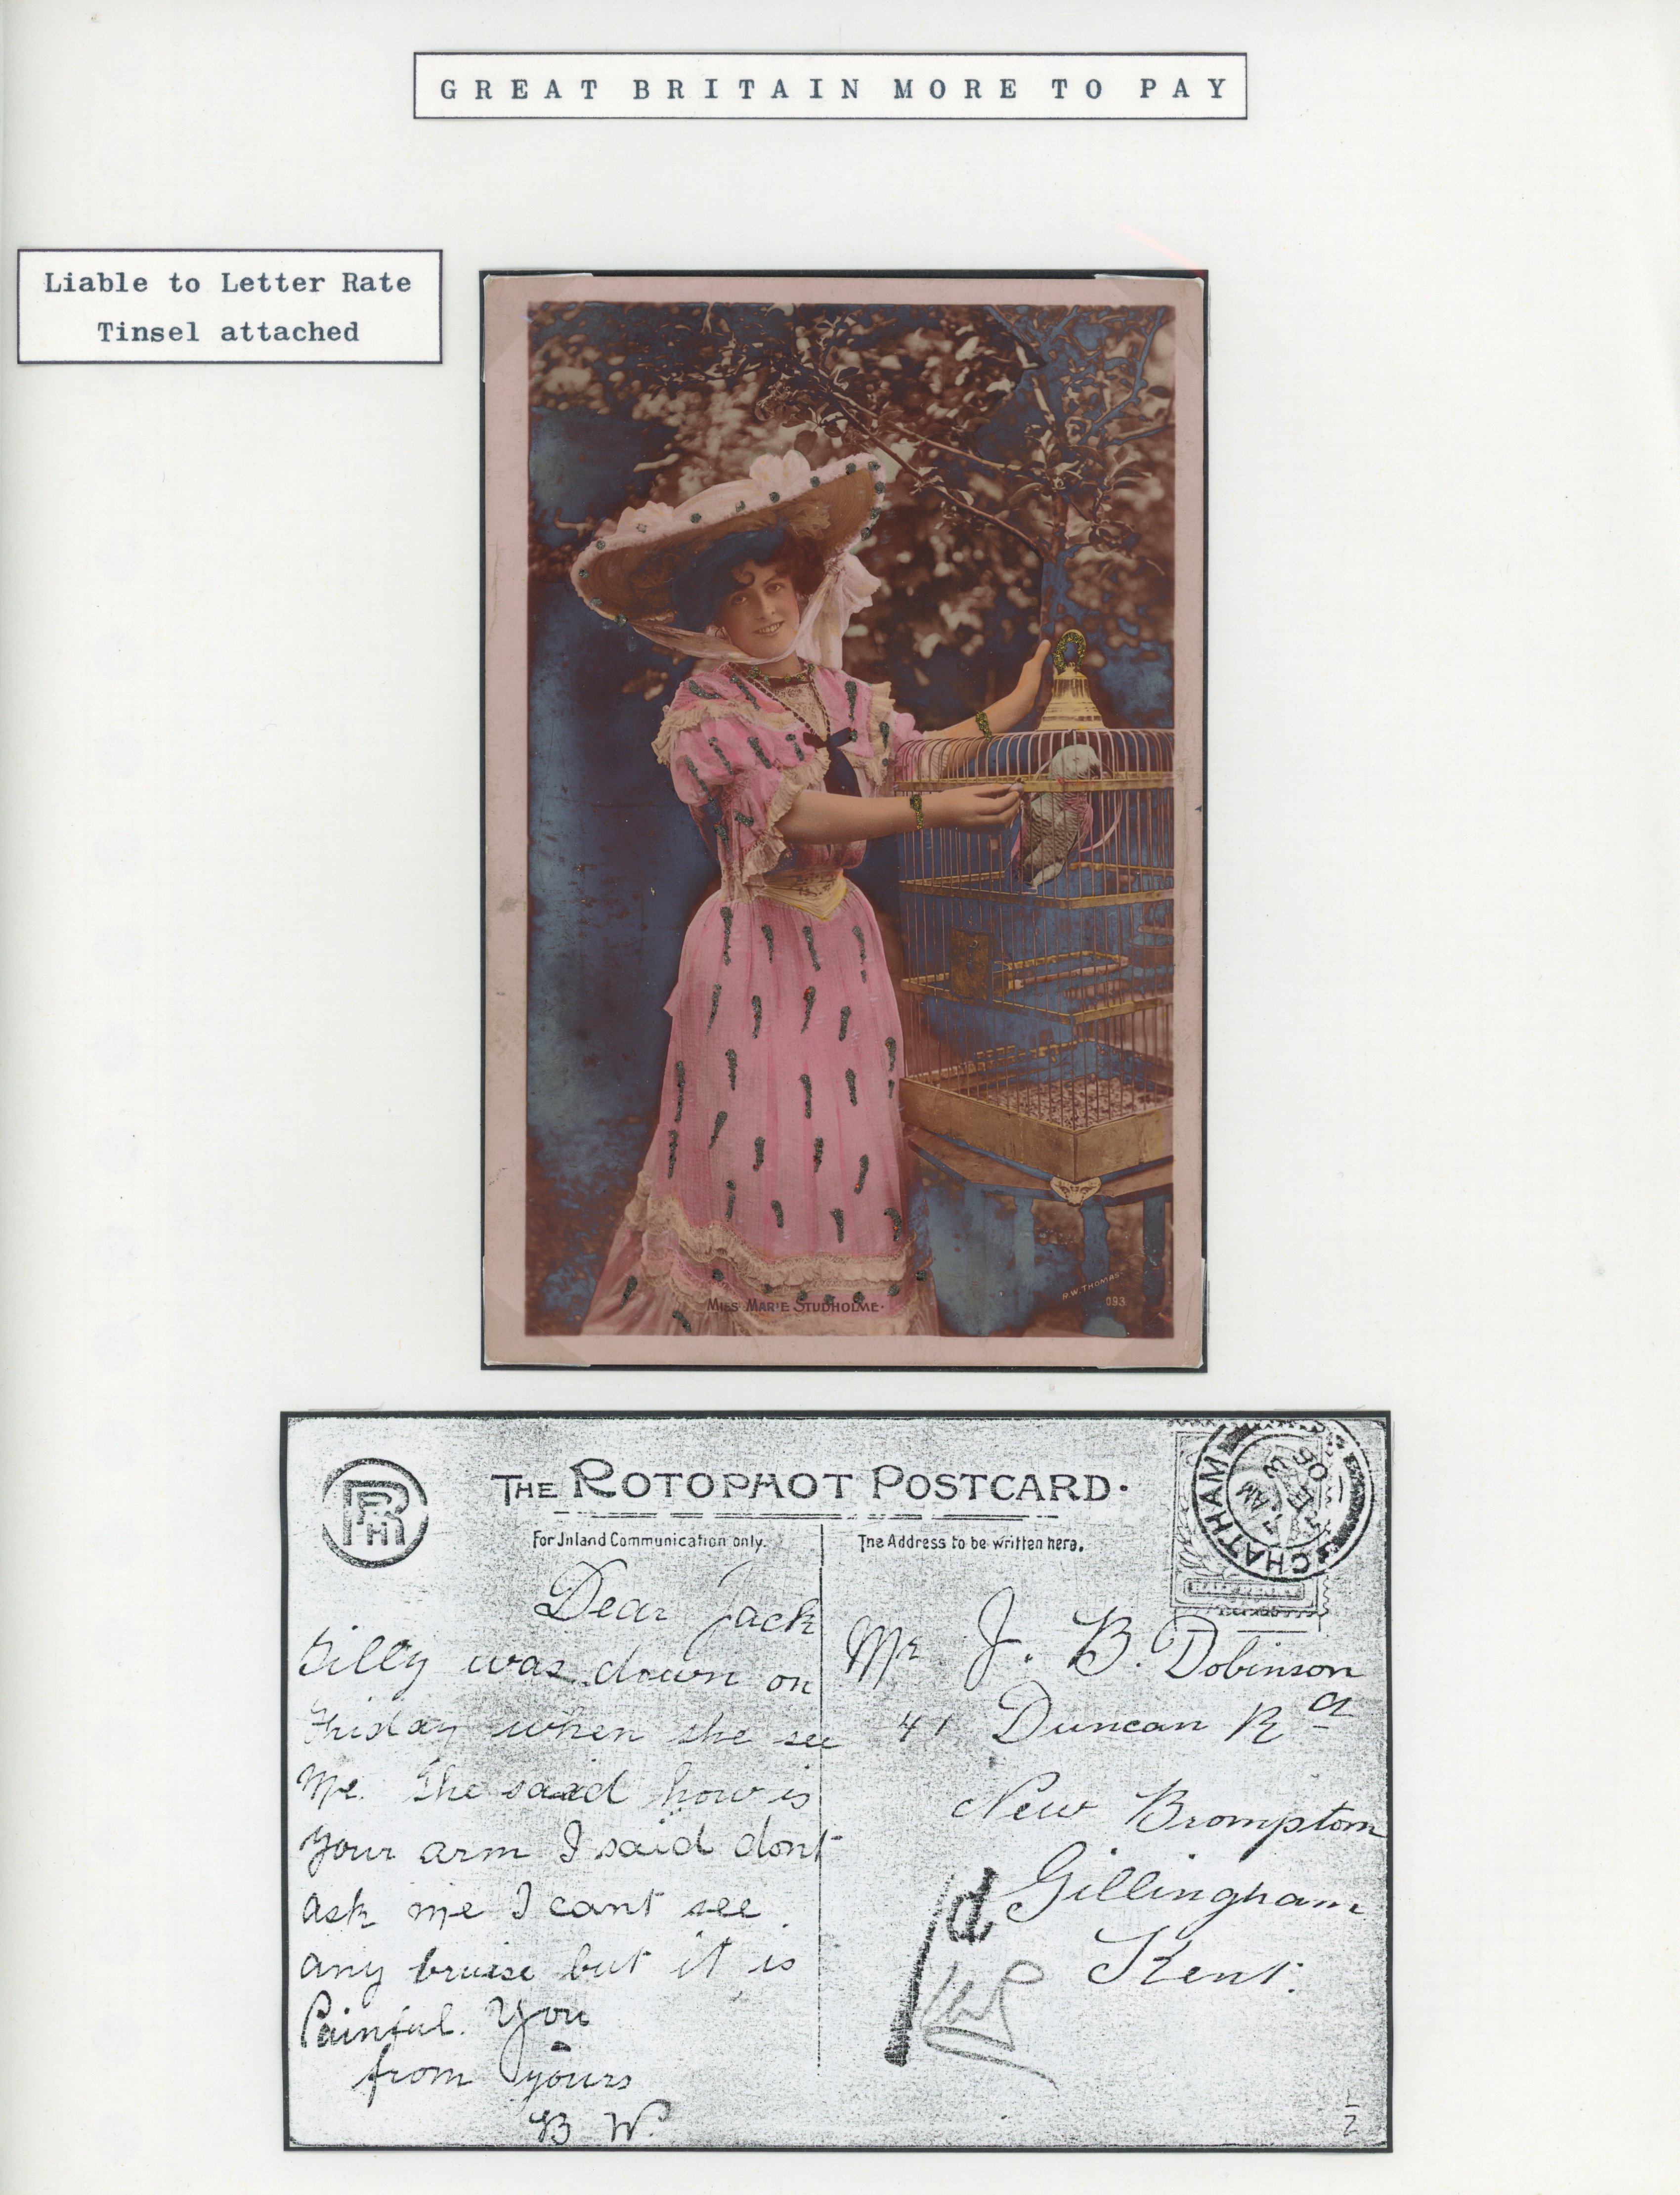 GREAT BRITAIN MORE TO PAY
Liable to Letter Rate
Tinsel attached
MISS MARIE STUDHOLME.
R.W. THOMAS
093
THE ROTOPHOT POSTCARD.
For Inland Communication only.
The Address to be written here.
CHATHAM
AM
06
Dear Jack
Gilly was down on
Friday when she see
Me. She said how is
your arm I said dont
ask me I cant see
any bruise but it is
Painful. You
from yours
B W.
Mr J. B. Dobinson
41 Duncan Rd
New Brompton
Gillingham
Kent.
1d